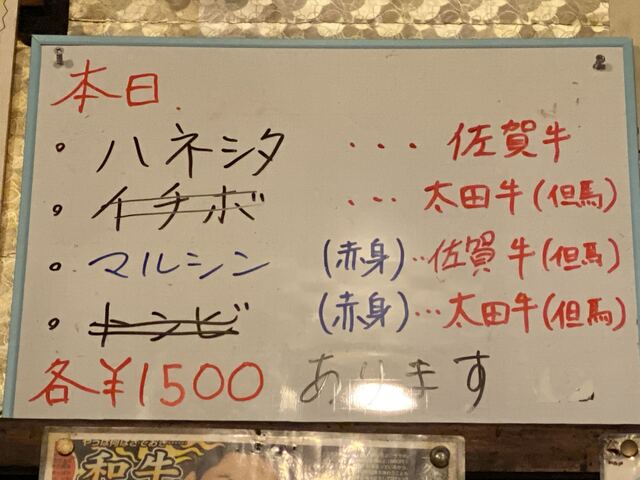 本日
・ハネシタ ... 佐賀牛
・イチボ ... 太田牛(但馬)
・マルシン (赤身)...佐賀牛(但馬)
・トンビ (赤身)...太田牛(但馬)
各¥1500 あります
和牛